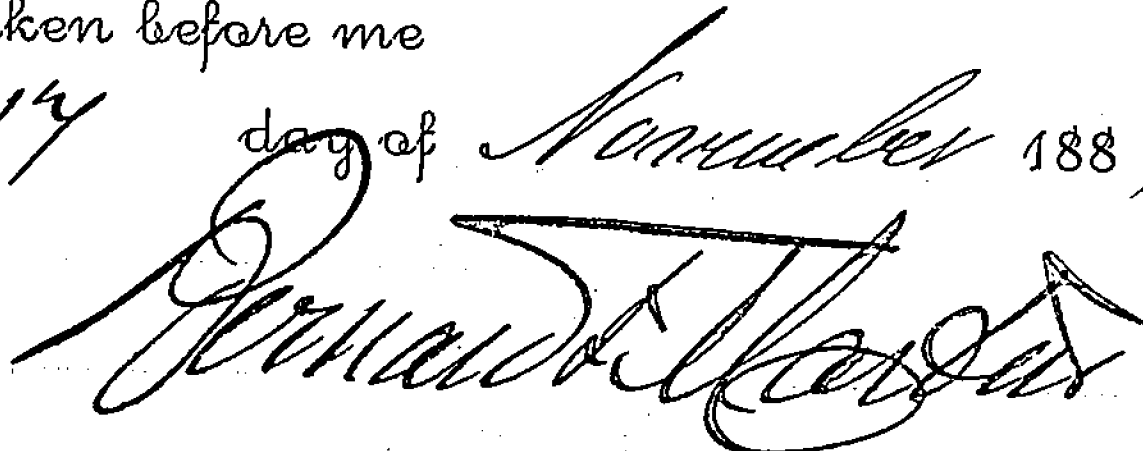 ken before me
17 day of November 188
Bernard